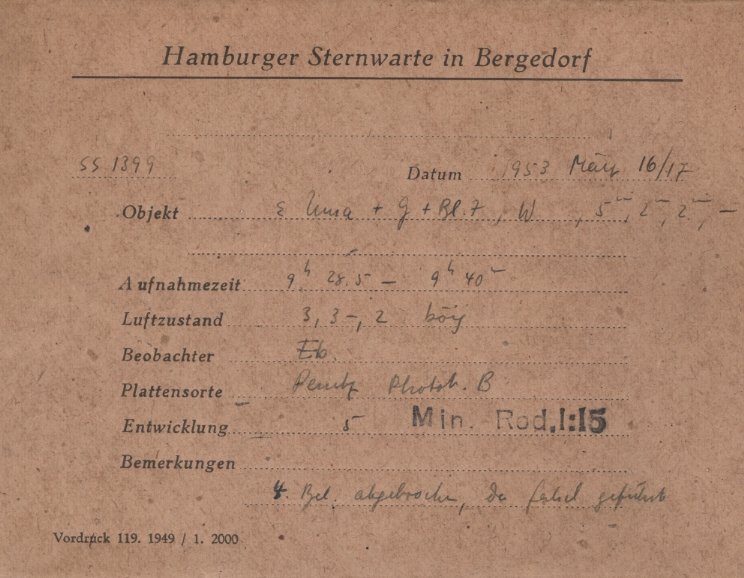 Hamburger Sternwarte in Bergedorf
SS 1399
Datum 1953 März 16/17
Objekt ε Umaj + G + Bl. 7, W , 5ᵐ, 2ᵐ, 2ᵐ, —
Aufnahmezeit 9ʰ 28.5 — 9ʰ 40ᵐ
Luftzustand 3, 3–, 2 böig
Beobachter
Plattensorte Perutz Photot. B
Entwicklung 5 Min. Rod. 1:15
Bemerkungen
4. Bel. abgebrochen, da falsch geführt
Vordruck 119. 1949 / 1. 2000